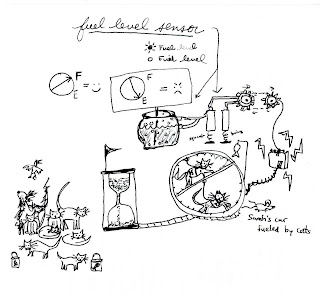 fuel level sensor
Fuel level
Fuel level
F
E
= :)
F
E
= :(
Sarah's car
fueled by cats